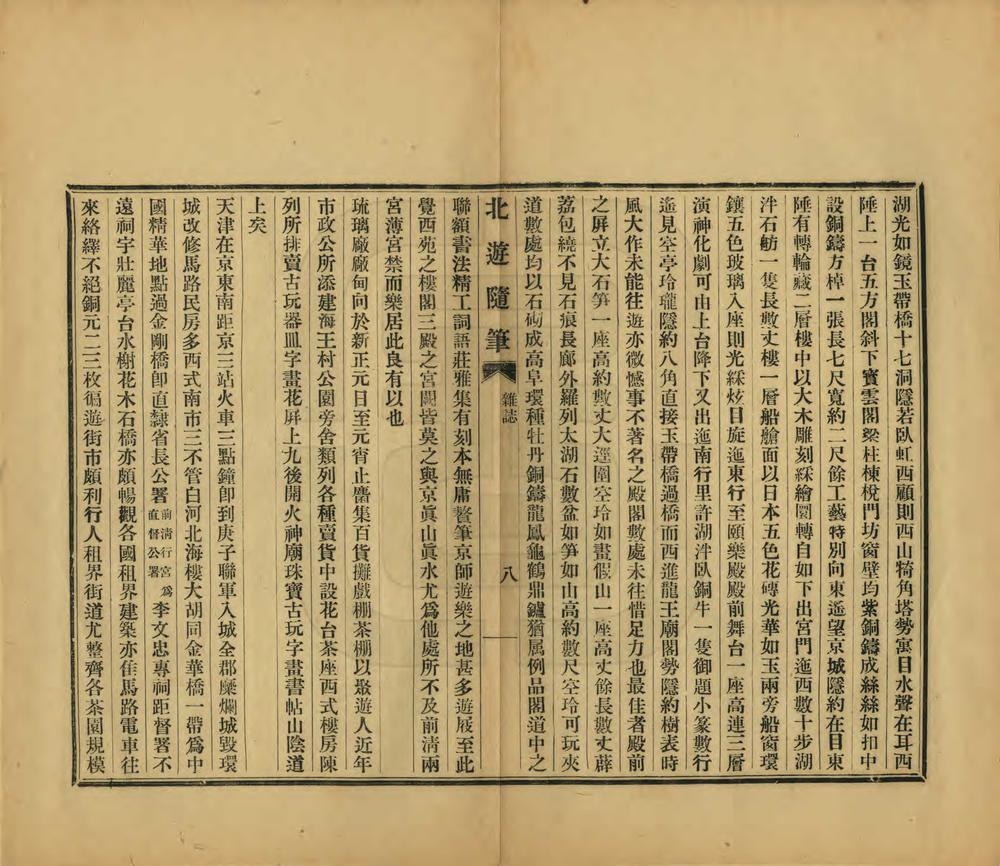 湖光如鏡玉帶橋十七洞隱若臥虹西顧則西山犄角塔勢寓目水聲在耳西
陲上一台五方閣斜下寶雲閣梁柱棟梲門坊窗壁均紫銅鑄成絲絲如扣中
設銅鑄方棹一張長七尺寬約二尺餘工藝特別向東遙望京城隱約在目東
陲有轉輪藏二層樓中以大木雕刻綵繪圜轉自如下出宮門迤西數十步湖
泮石舫一隻長數丈樓一層船艙面以日本五色花磚光華如玉兩旁船窗環
鑲五色玻璃入座則光綵炫目旋迤東行至頤樂殿殿前舞台一座高連三層
演神化劇可由上台降下又出迤南行里許湖泮臥銅牛一隻御題小篆數行
遙見空亭玲瓏隱約八角直接玉帶橋過橋而西進龍王廟閣勢隱約樹表時
風大作未能往遊亦微憾事不著名之殿閣數處未往惜足力也最佳者殿前
之屏立大石笋一座高約數丈大逕圍空玲如畫假山一座高丈餘長數丈薜
荔包繞不見石痕長廊外羅列太湖石數盆如笋如山高約數尺空玲可玩夾
道數處均以石砌成高阜環種牡丹銅鑄龍鳳龜鶴鼎鑪猶属例品閣道中之
北遊隨筆 雜誌 八
聯額書法精工詞語莊雅集有刻本無庸贅筆京師遊樂之地甚多遊屐至此
覺西苑之樓閣三殿之宮闕皆莫之與京眞山眞水尤爲他處所不及前淸兩
宮薄宮禁而樂居此良有以也
琉璃廠廠甸向於新正元日至元宵止麕集百貨攤戲棚茶棚以聚遊人近年
市政公所添建海王村公園旁舍類列各種賣貨中設花台茶座西式樓房陳
列所排賣古玩器皿字畫花屏上九後開火神廟珠寶古玩字畫書帖山陰道
上矣
天津在京東南距京三站火車三點鐘卽到庚子聯軍入城全郡糜爛城毀環
城改修馬路民房多西式南市三不管白河北海樓大胡同金華橋一帶爲中
國精華地點過金剛橋卽直隸省長公署前淸行宮爲直督公署李文忠專祠距督署不
遠祠宇壯麗亭台水榭花木石橋亦頗暢觀各國租界建築亦佳馬路電車往
來絡繹不絕銅元二三枚徧遊街市頗利行人租界街道尤整齊各茶園規模